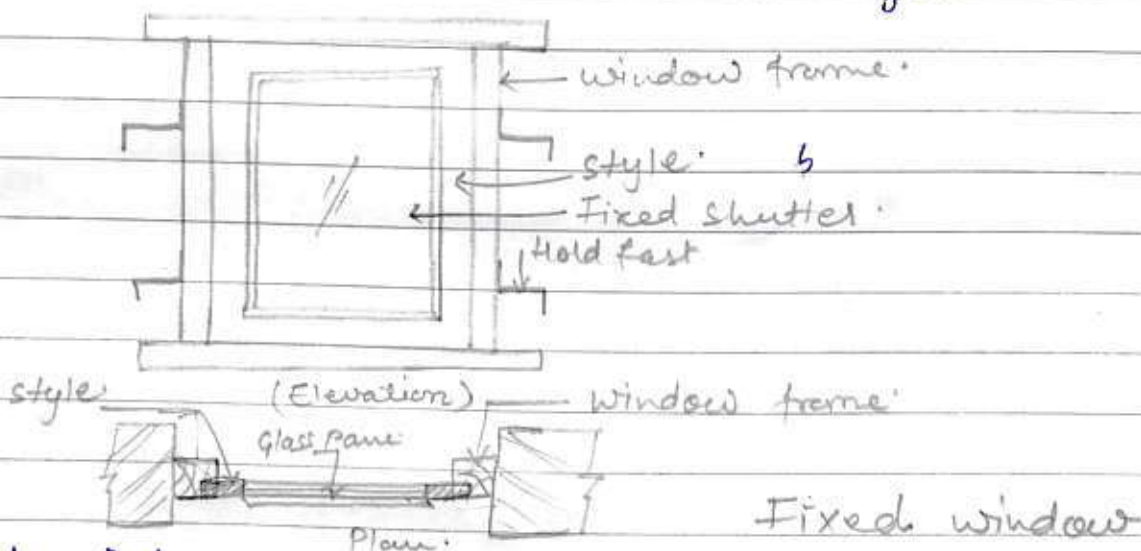 window frame.
style.
Fixed shutter.
Hold fast
style (Elevation) window frame.
Glass pane.
Fixed window
Plan.